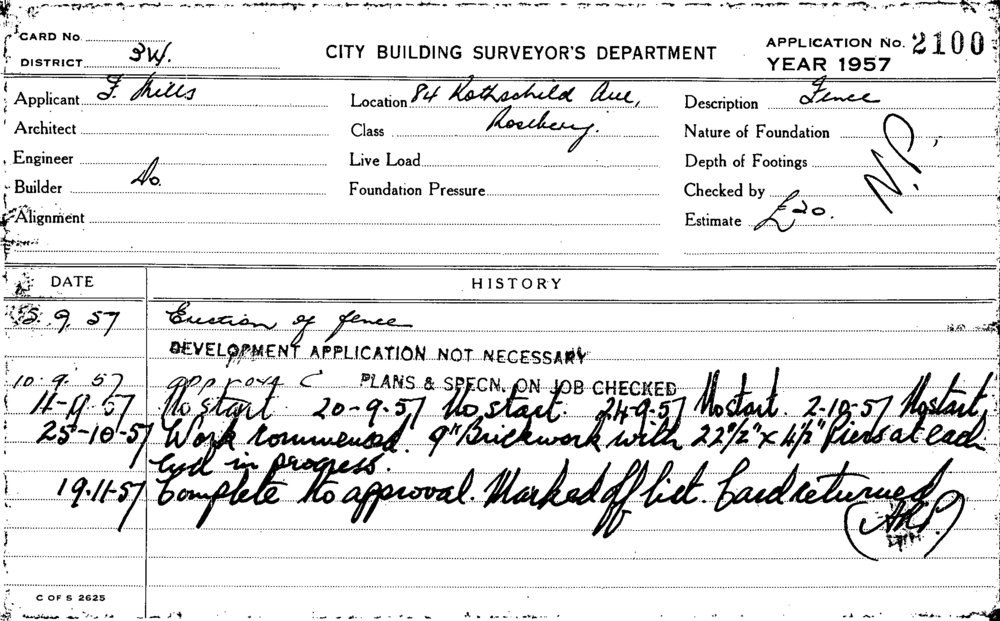 CARD No.
DISTRICT 3W.
CITY BUILDING SURVEYOR'S DEPARTMENT
APPLICATION No. 2100
YEAR 1957
Applicant F. Mills
Location 84 Rothschild Ave,
Description Fence
Architect
Class Rosebery.
Nature of Foundation N.P.
Engineer
Live Load
Depth of Footings
Builder Do.
Foundation Pressure
Checked by
Alignment
Estimate £20.
DATE
HISTORY
5. 9. 57 Erection of fence
DEVELOPMENT APPLICATION NOT NECESSARY
10. 9. 57 approval C PLANS & SPECN. ON JOB CHECKED
11-9-57 No start 20-9-57 No start. 24-9-57 No start. 2-10-57 No start,
25-10-57 Work commenced. 9" Brickwork with 22½" x 4½" Piers at each
End in progress.
19.11-57 Complete to approval. Marked off list. Card returned
C OF S 2625